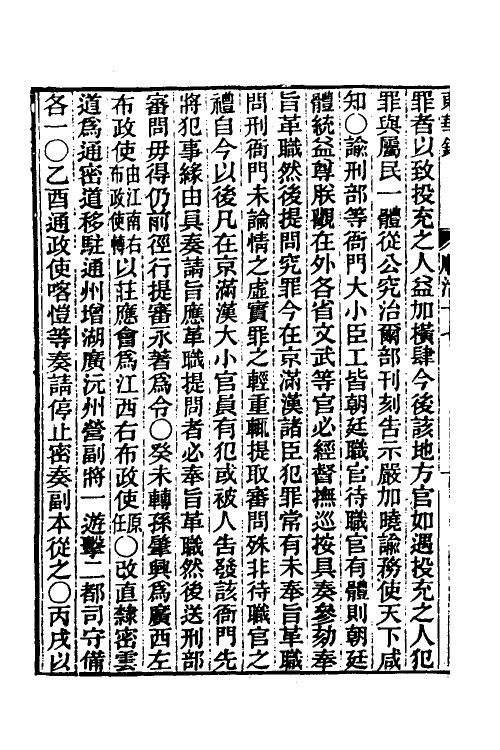 罪者以致投充之人益加橫肆今後該地方官如遇投充之人犯
罪與屬民一體從公究治爾部刊刻告示嚴加曉諭務使天下咸
知○諭刑部等衙門大小臣工皆朝廷職官待職官有體則朝廷
體統益尊朕觀在外各省文武等官必經督撫巡按具奏參劾奉
旨革職然後提問究罪今在京滿漢諸臣犯罪常有未奉旨革職
問刑衙門未論情之虛實罪之輕重輒提取審問殊非待職官之
禮自今以後凡在京滿漢大小官員有犯或被人告發該衙門先
將犯事緣由具奏請旨應革職提問者必奉旨革職然後送刑部
審問毋得仍前徑行提審永著為令○癸未轉孫肇興為廣西左
布政使由江南右布政使轉以莊應會為江西右布政使原任○改直隸密雲
道為通密道移駐通州增湖廣沅州營副將一遊擊二都司守備
各一○乙酉通政使喀愷等奏請停止密奏副本從之○丙戌以